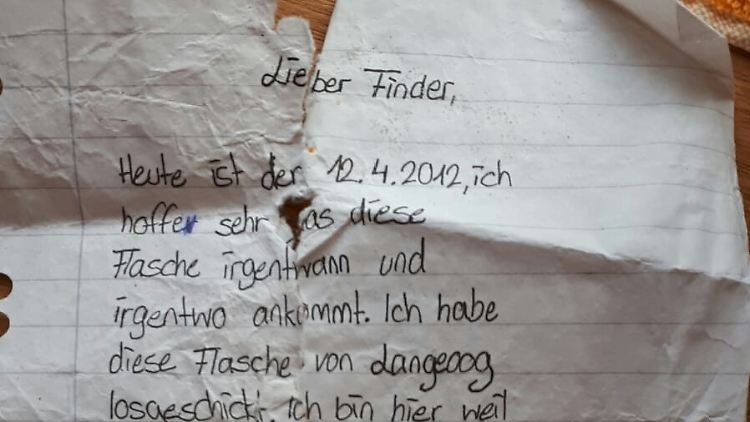 Lieber Finder,
Heute ist der 12.4.2012, ich
hoffe sehr das diese
Flasche irgentwann und
irgentwo ankommt. Ich habe
diese Flasche von Langeoog
losgeschickt. Ich bin hier weil